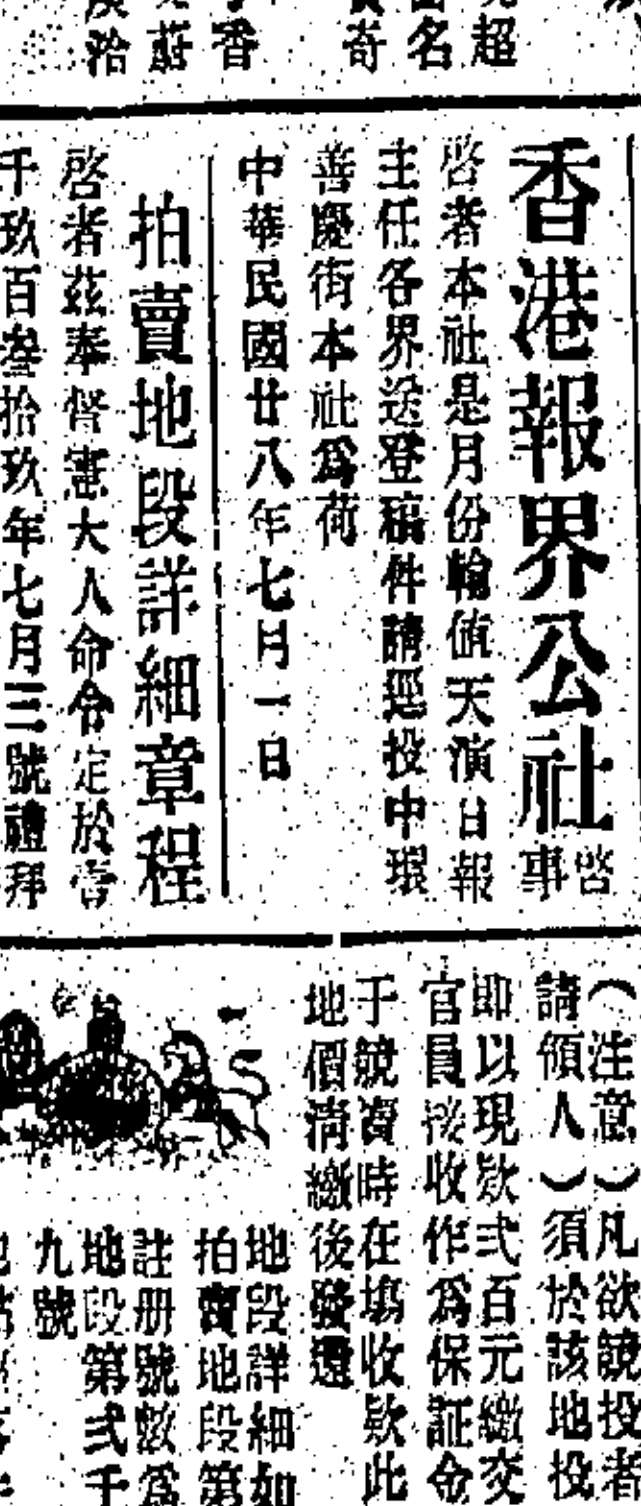 超
名
奇
香
蔚
洽
香港報界公社啓事
啓者本社是月份輪值天演日報
主任各界送登稿件請逕投中環
善慶街本社爲荷
中華民國廿八年七月一日
拍賣地段詳細章程
啓者茲奉督憲大人命令定於壹
千玖百叁拾玖年七月三號禮拜
(注意)凡欲競投者
請領人)須於該地投
即以現欵式百元繳交
官員接收作爲保証金
于競賣時在塲收欵此
地價清繳後發還
地段詳細如
拍賣地段第
註册號數爲
地段第式千
九號